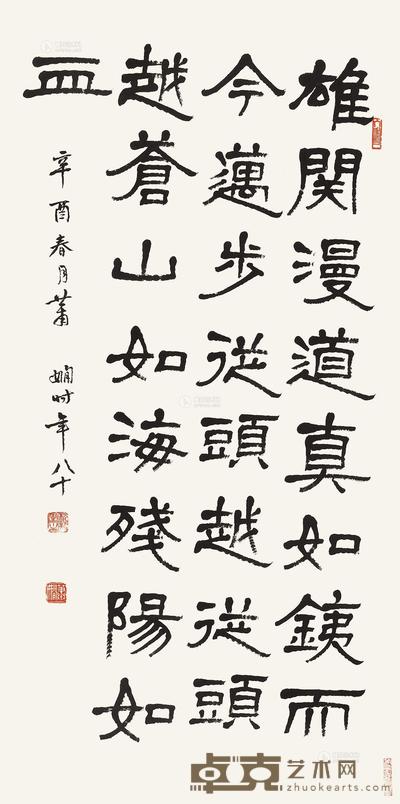 雄関漫道真如銕而
今邁步從頭越從頭
越蒼山如海殘陽如
血
辛酉春月蕭嫻时年八十
卓克艺术网
zhuokearts.com